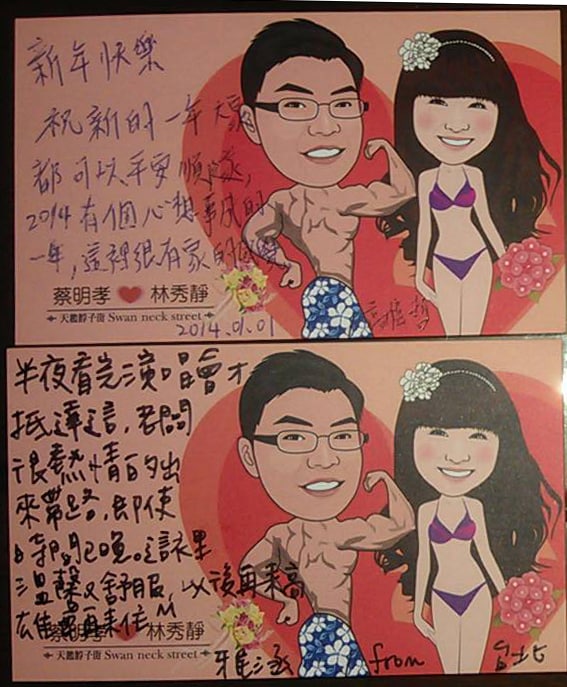 新年快樂
祝新的一年大家
都可以平安順遂,
2014有個心想事成的
一年,這裡很有家的感覺
蔡明孝 林秀靜
天鵝脖子街 Swan neck street
2014.01.01
半夜看完演唱會才
抵達這,老闆
很熱情的出
來帶路,即使
時間已晚。這裡
溫馨又舒服,以後再來高
雄要再來住
蔡明孝 林秀靜
天鵝脖子街 Swan neck street
雅涵 from 台北